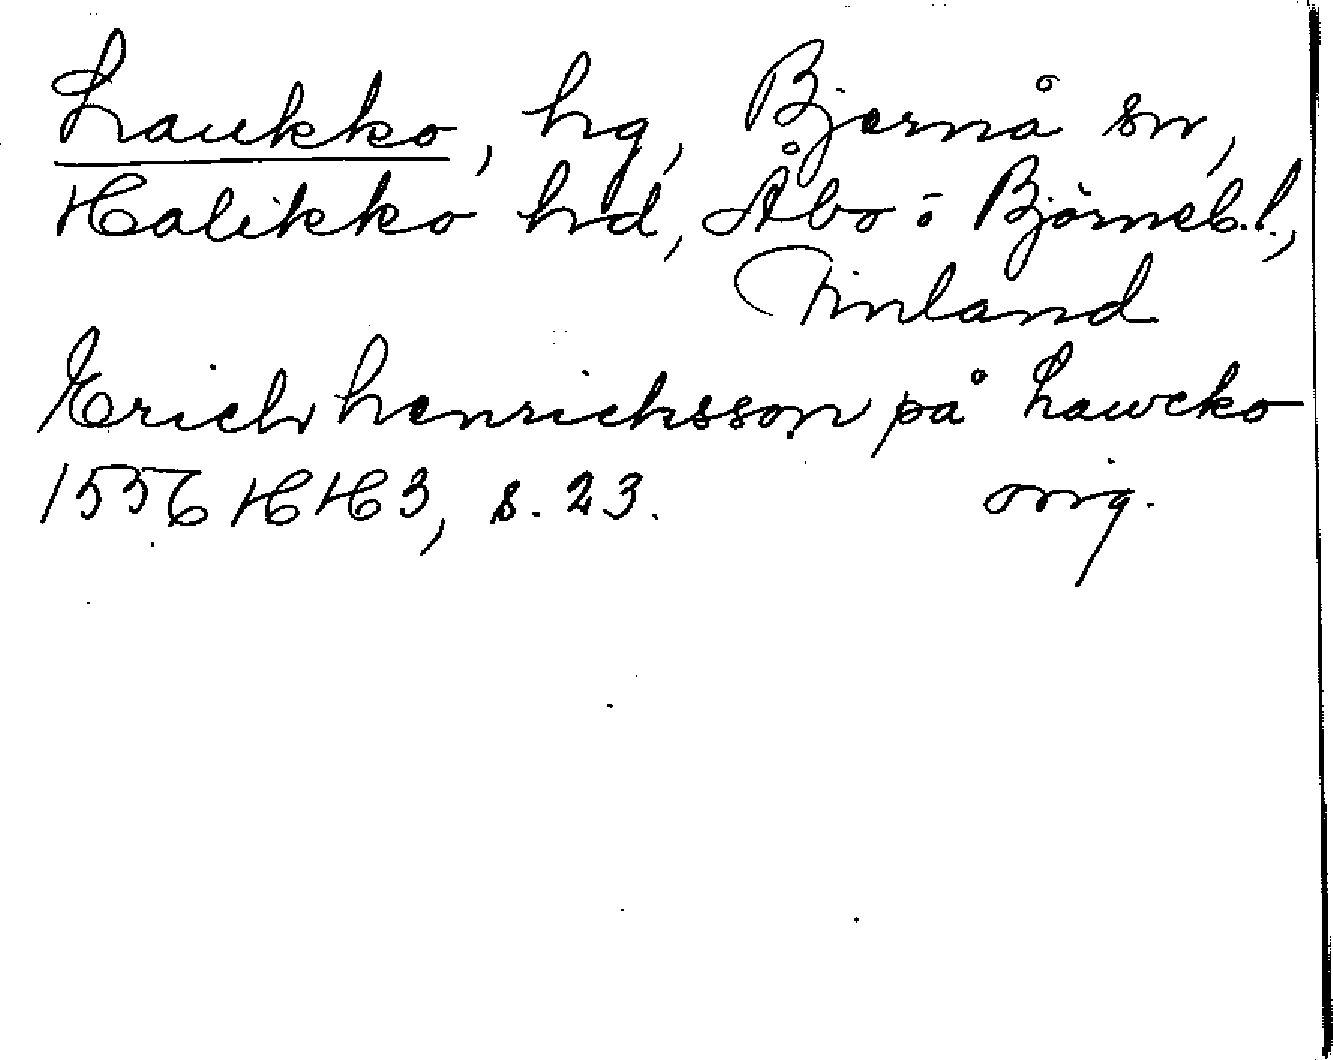 Laukko, hg, Bjernå sn,
Halikko hd, Åbo o Björneb.l.,
Finland
Erich henrichsson på Lawcko
1556 HH3, s. 23. orig.